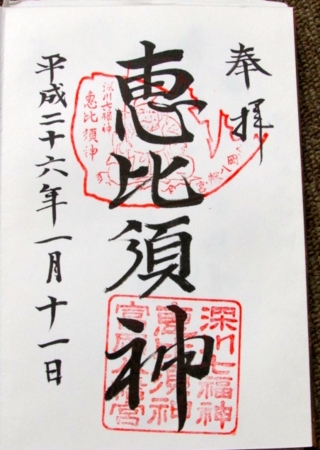 奉拝
恵比須神
深川七福神
恵比須神
深川七福神
恵比須神
富岡八幡宮
平成二十六年一月十一日